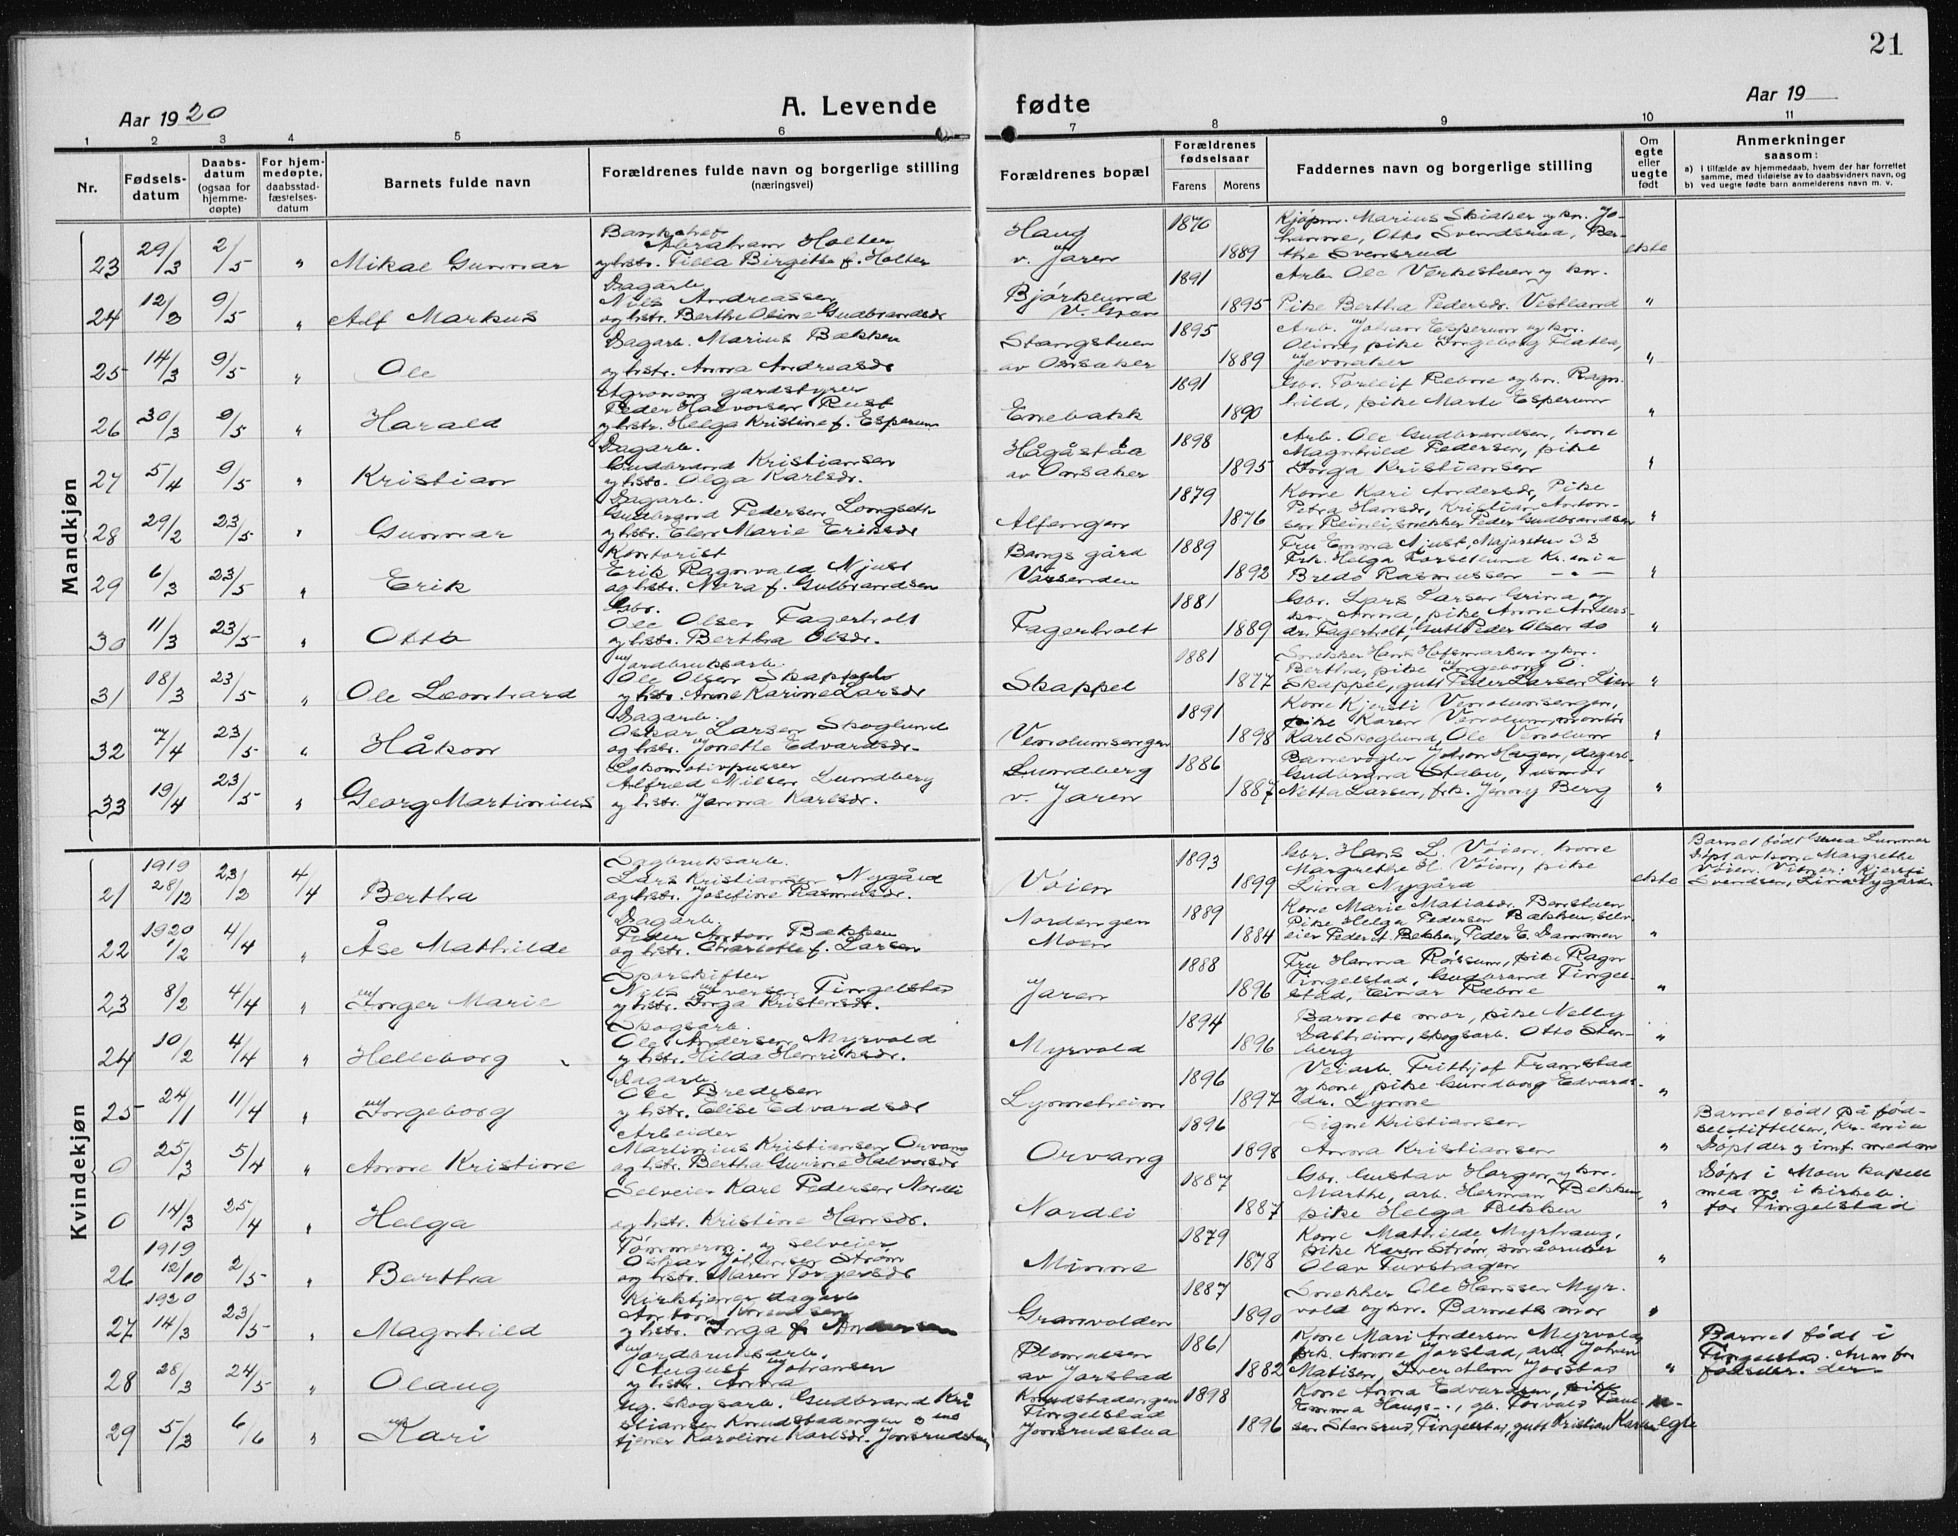 21
Aar 1920
A. Levende fødte
Aar 19
1 2 3 4 5 6 7 8 9 10 11
Nr.
Fødselsdatum
Daabsdatum (ogsaa for hjemmedøpte)
For hjemmedøpte, daabsstadfæstelsesdatum
Barnets fulde navn
Forældrenes fulde navn og borgerlige stilling (næringsvei)
Forældrenes bopæl
Forældrenes fødselsaar
Farens Morens
Faddernes navn og borgerlige stilling
Om egte eller uegte født
Anmerkninger
saasom:
a) I tilfælde av hjemmedaab, hvem der har forrettet samme, med tilføielse av to daabsvidners navn, og
b) ved uegte fødte barn anmelderens navn m. v.
Mandkjøn
23 29/3 2/5 " Mikal Gunnar
Abraham Holter
og hstr. Tilla Birgitte f. Holter
Haug
v. Jaren
1870 1889
Kjøpm. Marius Skiaker og kn. Jo-
hanne, Otto Svendsrud, Ber-
the Svensrud
ekte
24 12/3 9/5 " Alf Markus
Dagarb.
Nils Andreassen
og hstr. Berthe Oline Gudbrandsdr
Bjørklund
V. Gran
1891 1895
Arb. Ole Verkestuen og kn.
Pike Bertha Pedersdr. Vestland
"
25 14/3 9/5 " Ole
Dagarb. Marius Bækken
og hstr. Anna Andreasdr
Stangstuen
av Onsaker
1895 1889
Arb. Johan Esperum og kn.
Oline, pike Ingeborg Flatla,
Jevnaker
"
26 30/3 9/5 " Harald
Agronom gardstyrer
Peder Halvorsen Rust
og hstr. Helga Kristine f. Esperum
Enebakk
1891 1890
Gbr. Torleif Rebne og kn. Ragn-
hild, pike Marte Esperum
"
27 5/4 9/5 " Kristian
Dagarb.
Gudbrand Kristiansen
og hstr. Olga Karlsdr.
Hågåståa
av Onsaker
1898 1895
Arb. Ole Gudbrandsen, kone
Magnhild Pedersen, pike
Inga Kristiansen
"
28 29/2 23/5 " Gunnar
Dagarb.
Gudbrand Pedersen Longseth
og hstr. Elen Marie Eriksdr
Alfengen
1879 1876
Kone Kari Andersdr, Pike
Petra Hansdr, Kristian Anton-
sen Reinli, snekker Peder Gudbrandsen
"
29 6/3 23/5 " Erik
Kontorist
Erik Ragnvald Njust
og hstr. Nora f. Gulbrandsen
Bangs gård
1889 1892
Fru Emma Njust, Majorstu 33
Frk. Helga Korsetlund Kr.ania
Bredo Rasmussen — " —
"
30 11/3 23/5 " Otto
Gbr.
Ole Olsen Fagerholt
og hstr. Bertha Olsdr.
Fagerholt
1881 1889
Gbr. Lars Larsen Grina, og
kn. Anna, pike Anne Anders-
dr. Fagerholt, Gutt Peder Olsen do
"
31 18/3 23/5 " Ole Leonhard
Jordbruksarb.
Ole Olsen Skappel
og hstr. Anne Karine Larsdr
Skappel
1881 1877
Snekker Hans Hofsmarken og kn.
Bertha, pike Ingeborg O.
Skappel, gutt Peder Larsen Lien
"
32 7/4 23/5 " Håkon
Dagarb.
Oskar Larsen Skoglund
og hstr. Jonette Edvardsdr.
Venolumsengen
1891 1898
Kone Kjersti Venolumsengen,
pike Karen Venolum, montør
Karl Skoglund, Ole Venolum
"
33 19/4 23/5 " Georg Martinius
Lokomotivpusser
Alfred Nilsen Lundberg
og hstr. Janna Karlsdr.
Lundberg
v. Jaren
1886 1887
Banevogter Johan Hagen, dagarb.
Gudbrand Stabu, husmor
Netta Larsen, frk. Jenny Berg
"
Kvindekjøn
21 1919 28/12 23/2 4/4 Bertha
Sagbruksarb.
Lars Kristiansen Nygård
og hstr. Josefine Rasmusdr.
Vøien
1893 1899
Gbr. Hans L. Vøien, kone
Margrethe H. Vøien, pike
Lina Nygård
ekte
Barnet født Grua Lunner
Døpt av kone Margrethe
Vøien. Vitner: Kjersti
Svendsen, Lina Nygård
22 1920 1/2 4/4 " Åse Mathilde
Dagarb.
Peder Anton Bækken
og hstr. Charlotte f. Larsen
Nordengen
Moen
1889 1884
Kone Marie Matiasdr. Benstuen
Pike Helga Pedersen Bækken, selv-
eier Peder A. Bekken, Peder E. Dammen
"
23 8/2 4/4 " Inger Marie
Sporskifter
Nils Iversen Tingelstad
og hstr. Inga Kristensdr.
Jaren
1888 1896
Fru Hanna Røssum, pike Ragn
Tingelstad, Gudbrand Tingel-
stad, Einar Rebne
"
24 10/2 4/4 " Helleborg
Skogsarb.
Ole Andersen Myrvold
og hstr. Hilda Henriksdr.
Myrvold
1894 1896
Barnets mor, pike Nelly
Dahlheim, skogsarb. Otto Sten-
berg
"
25 24/1 11/4 " Ingeborg
Dagarb.
Ole Bredesen
og hstr. Elise Edvardsdr
Lynneheim
1896 1897
Veiarb. Frithjof Framstad
og kone, pike Gundborg Edvards-
dr. Lynne
"
0 25/3 5/4 " Anne Kristine
Arbeider
Martinius Kristiansen Orvang
og hstr. Bertha Gurine Halvorsdr
Orvang
1896 1898
Signe Kristiansen
Anna Kristiansen
"
Barnet født på fød-
selsstiftelsen, Kr.ania
Døpt der
0 14/3 25/4 " Helga
Selveier Karl Pedersen Nordli
og hstr. Kristine Hansdr.
Nordli
1887 1887
Gbr. Gustav Horgen og kn.
Marthe, arb. Herman Bekken,
pike Helga Bekken
"
Døpt i Moen kapell
med no i kirkeb.
for Tingelstad
26 1919 12/10 2/5 " Bertha
Tømmerm. og selveier
Oskar Johansen Strøm
og hstr. Maren Torgersdr
Minne
1879 1878
Kone Mathilde Myrhaug,
pike Karen Strøm, småbruker
Olav Tuvshagen
"
27 1920 14/3 23/5 " Magnhild
Kirketjener dagarb
Anton
og hstr. Inga f. Andersen
Granvolden
1887 1890
Snekker Ole Hanssen Myr-
vold og kn. Barnets mor
"
28 28/3 24/5 " Olaug
Jordbruksarb.
August Johansen
og hstr. Anna
Plomasen
av Jorstad
1861 1882
Kone Mari Andersen Myrvold,
pik. Anne Jorstad, arb. Johan
Matisen, Iver Alm Jorstad
"
Barnet født i
Tingelstad. Anm for
fødselsr. der
29 5/3 6/6 " Kari
Ug. skogsarb. Gudbrand Kri
stiansen Knudstadengen og ug
tjener Karoline Karlsdr. Jonsrudstuen
Knudstadengen
Tingelstad
Jonsrudstua
1898 1896
Kone Anna Edvardsen, pike
Emma Haugs-, gb. Torvald Paul-
sen Stensrud, Tingelstad, gutt Kristian Karlsen
u-
egte